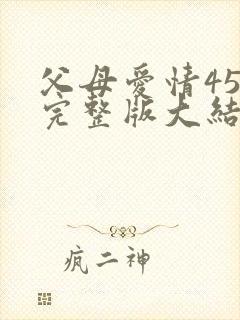 父母爱情45
完整版大結
疯二神